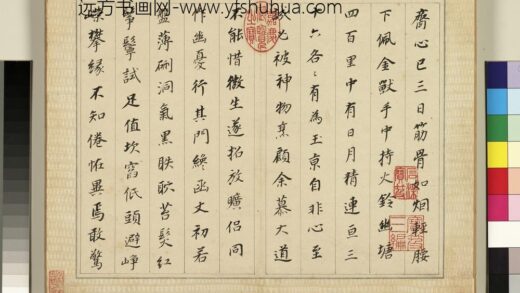 远方书画网-www.yfshuhua.com
齋心已三日筋骨如烟輕腰
下佩金獸手中持火鈴幽塘
四百里中有日月精連亘三
十六各各有為玉京自非心至
誠必被神物烹顧余慕大道
不能惜微生遂招放曠侣同
作幽憂行其門繞函丈初若
盤薄硎洞氣黑昳𥆧苔髮紅
鬇鬡試足值坎窞低頭避崢
嶸攀緣不知倦怪異焉敢驚